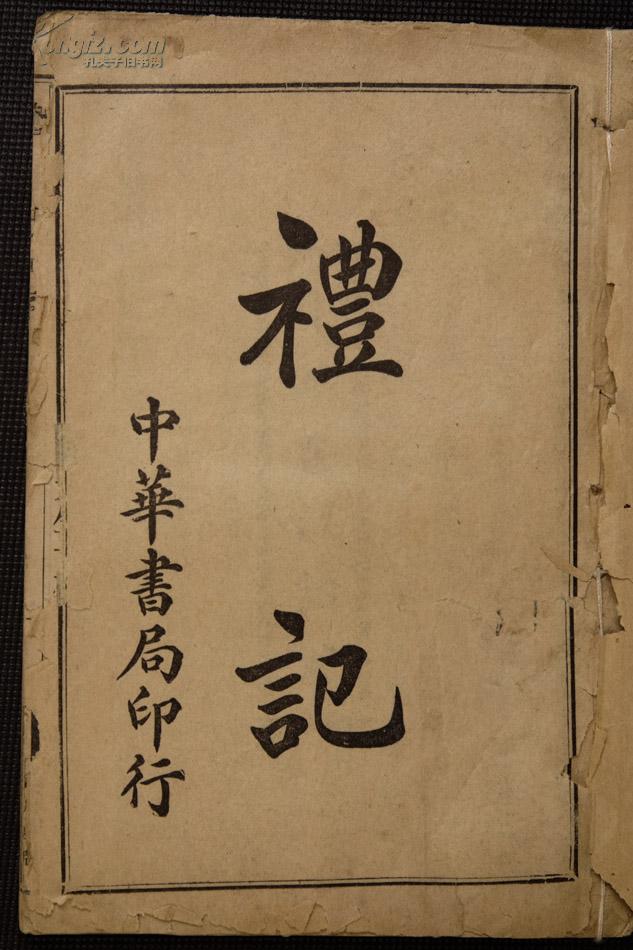 禮記
中華書局印行
Kongfz.com
孔夫子旧书网